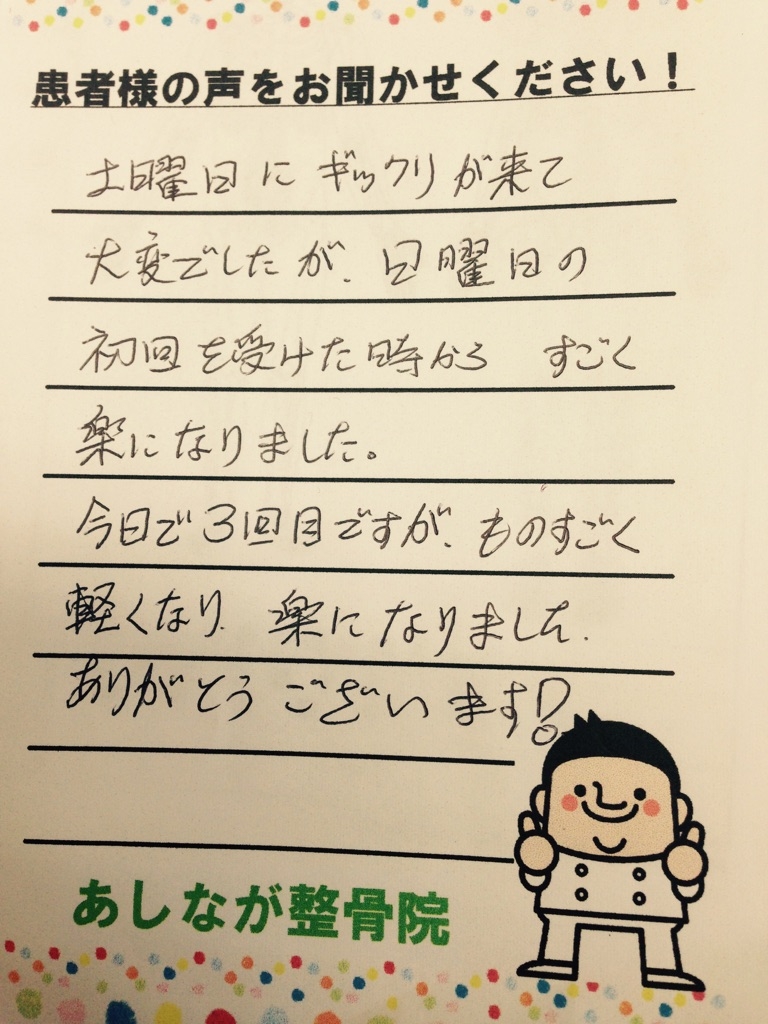 患者様の声をお聞かせください！
土曜日にギックリが来て
大変でしたが、日曜日の
初回を受けた時から すごく
楽になりました。
今日で3回目ですが、ものすごく
軽くなり、楽になりました。
ありがとうございます!
あしなが整骨院